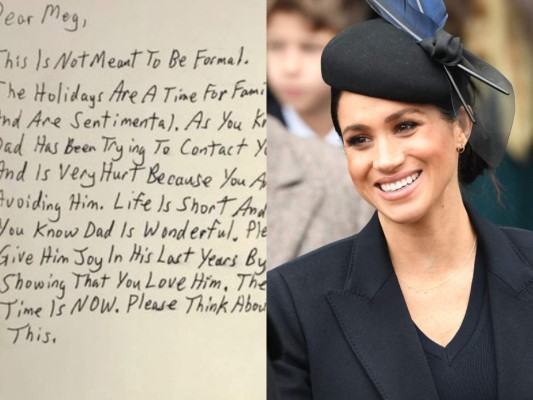 Dear Meg,
This Is Not Meant To Be Formal.
The Holidays Are A Time For Fami
And Are Sentimental. As You Kn
Dad Has Been Trying To Contact Yo
And Is Very Hurt Because You A
Avoiding Him. Life Is Short And
You Know Dad Is Wonderful. Ple
Give Him Joy In His Last Years By
Showing That You Love Him. The
Time Is NOW. Please Think Abou
This.